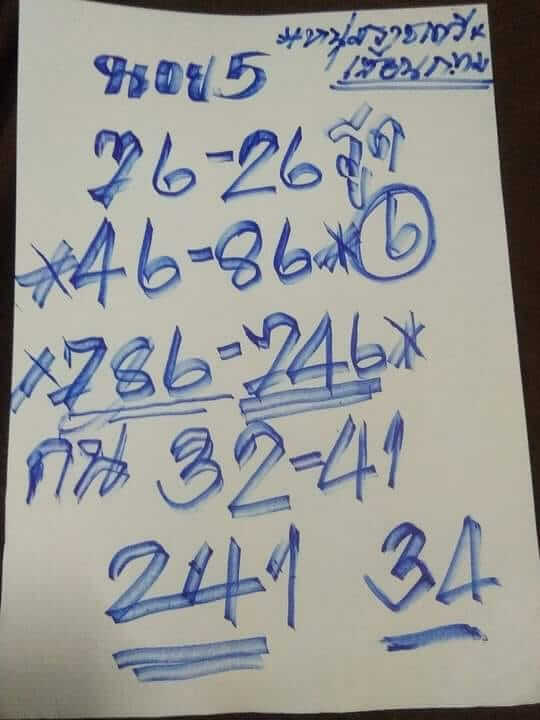 *หนุ่มราชเทวี*
เลื่อนภาพ
หอย 5
76-26 รูด
*46-86* 6
*786-746*
กัน 32-41
241 34